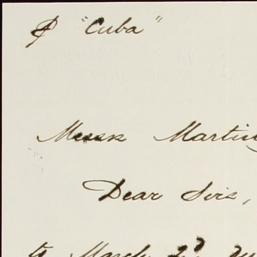 P "Cuba"
Messrs Martin
Dear Sirs,
to March 22